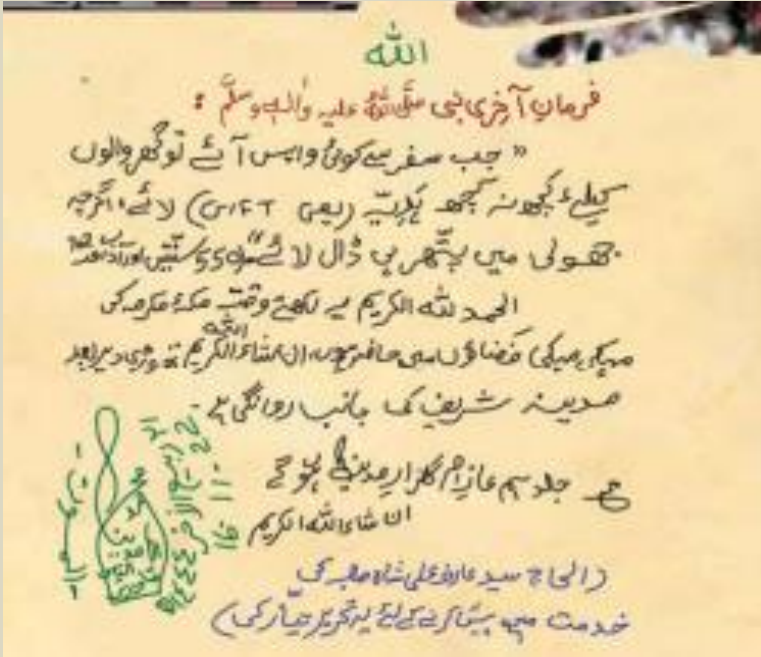 اللہ
فرمانِ آخری نبی صلَّی اللہُ علیہ واٰلہٖ وسلَّم :
"جب سفر سے کوئی واپس آئے تو گھر والوں
کیلئے کچھ نہ کچھ ہدیّہ (یعنی GIFT) لائے، اگرچہ
جھولی میں پتّھر ہی ڈال لائے" سنّتیں اور آداب
الحمد للہ الکریم یہ لکھتے وقت مکۂ مکرمہ کی
مہکی مہکی فضاؤں میں حاضر ہوں، ان شاء اللہ الکریم تھوڑی دیر بعد
مدینہ شریف کی جانب روانگی ہے۔
جلد ہم عازمِ گلزارِ مدینہ ہوں گے
ان شاء اللہ الکریم
ربیع الآخر
(الحاج سید عارف علی شاہ صاحب کی
خدمت میں پیش کرنے کے لئے یہ تحریر تیّار کی)